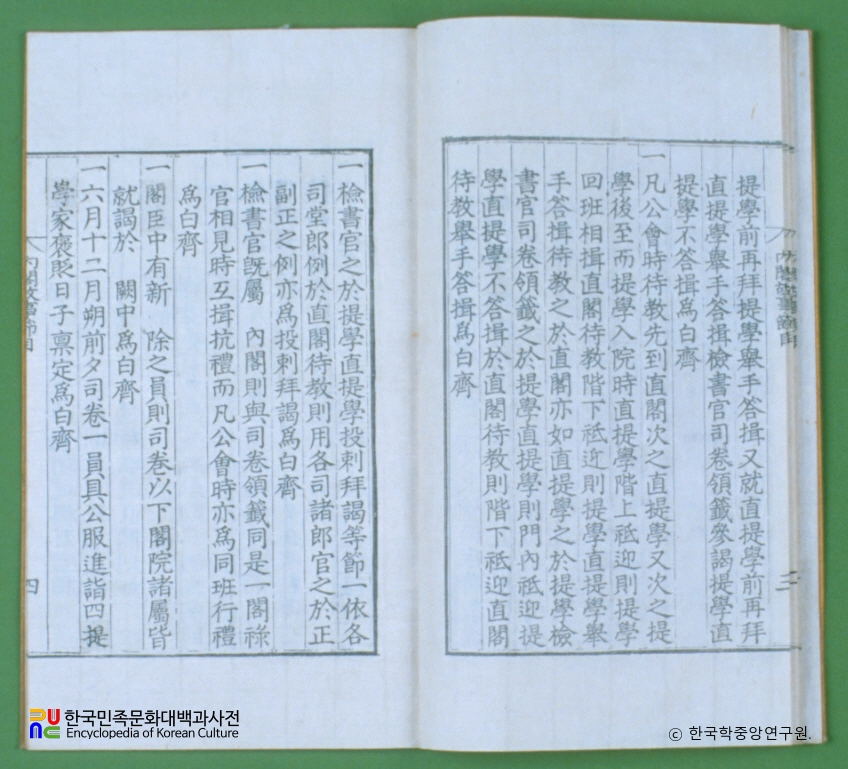 提學前再拜提學擧手答揖又就直提學前再拜
直提學擧手答揖檢書官司卷領籤參謁提學直
提學不答揖爲白齊
一凡公會時待教先到直閣次之直提學又次之提
學後至而提學入院時直提學階上祗迎則提學
回班相揖直閣待教階下祗迎則提學直提學擧
手答揖待教之於直閣亦如直提學之於提學檢
書官司卷領籤之於提學直提學則門內祗迎提
學直提學不答揖於直閣待教則階下祗迎直閣
待教擧手答揖爲白齊
三
一檢書官之於提學直提學投刺拜謁等節一依各
司堂郎例於直閣待教則用各司諸郎官之於正
副正之例亦爲投刺拜謁爲白齊
一檢書官旣屬 內閣則與司卷領籤同是一閣祿
官相見時互揖抗禮而凡公會時亦爲同班行禮
爲白齊
一閣臣中有新 除之員則司卷以下閣院諸屬皆
就謁於 闕中爲白齊
一六月十二月朔前夕司卷一員具公服進詣四提
學家褒貶日子 稟定爲白齊
四
PUNC 한국민족문화대백과사전
Encyclopedia of Korean Culture
© 한국학중앙연구원.